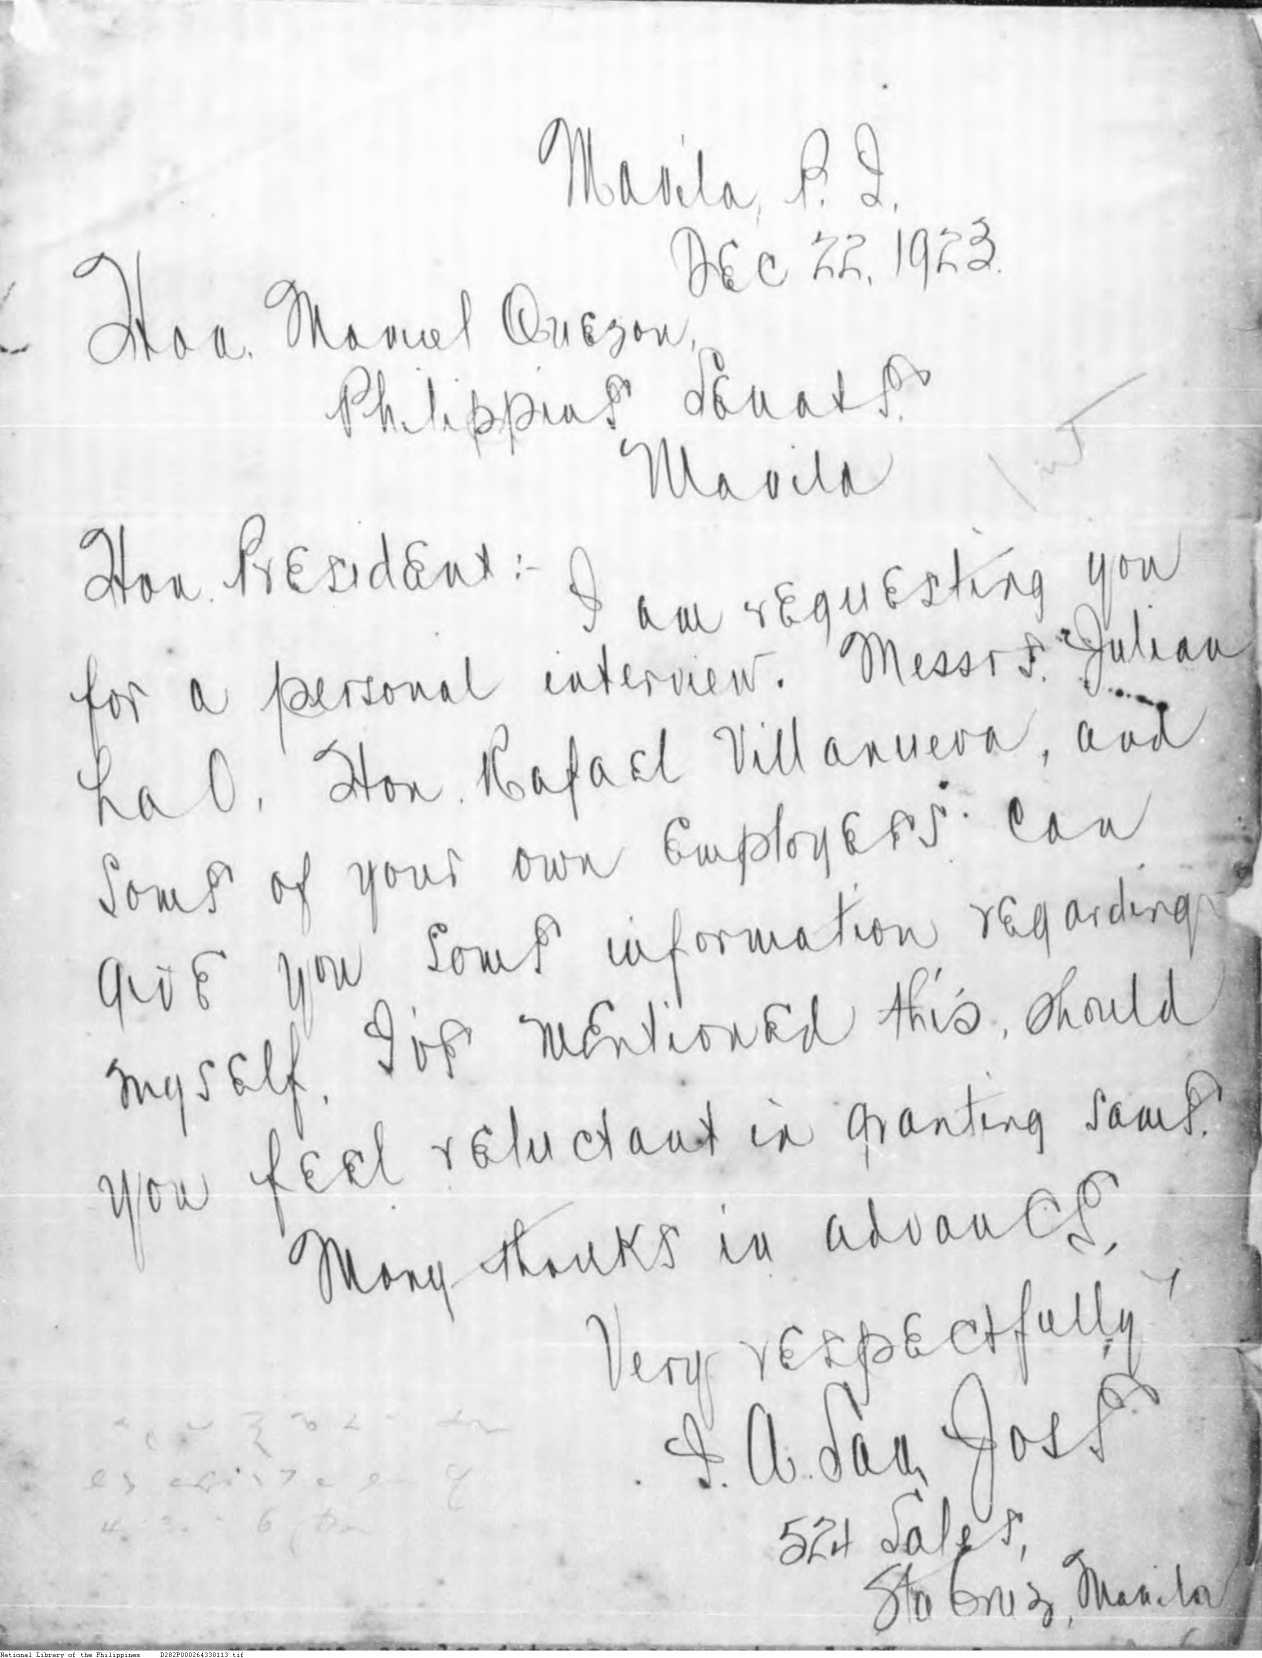 Manila, P. I.
Dec 22, 1923.
Hon. Manuel Quezon,
Philippine Senate.
Manila
Hon. President:-
I am requesting you
for a personal interview. Messrs. Julian
La O, Hon. Rafael Villanueva, and
some of your own Employees can
give you some information regarding
myself. I've mentioned this, should
you feel reluctant in granting same.
Many thanks in advance,
Very respectfully
I. A. San Jose
524 Sales,
Sta Cruz, Manila
National Library of the Philippines D282P000264330113.tif